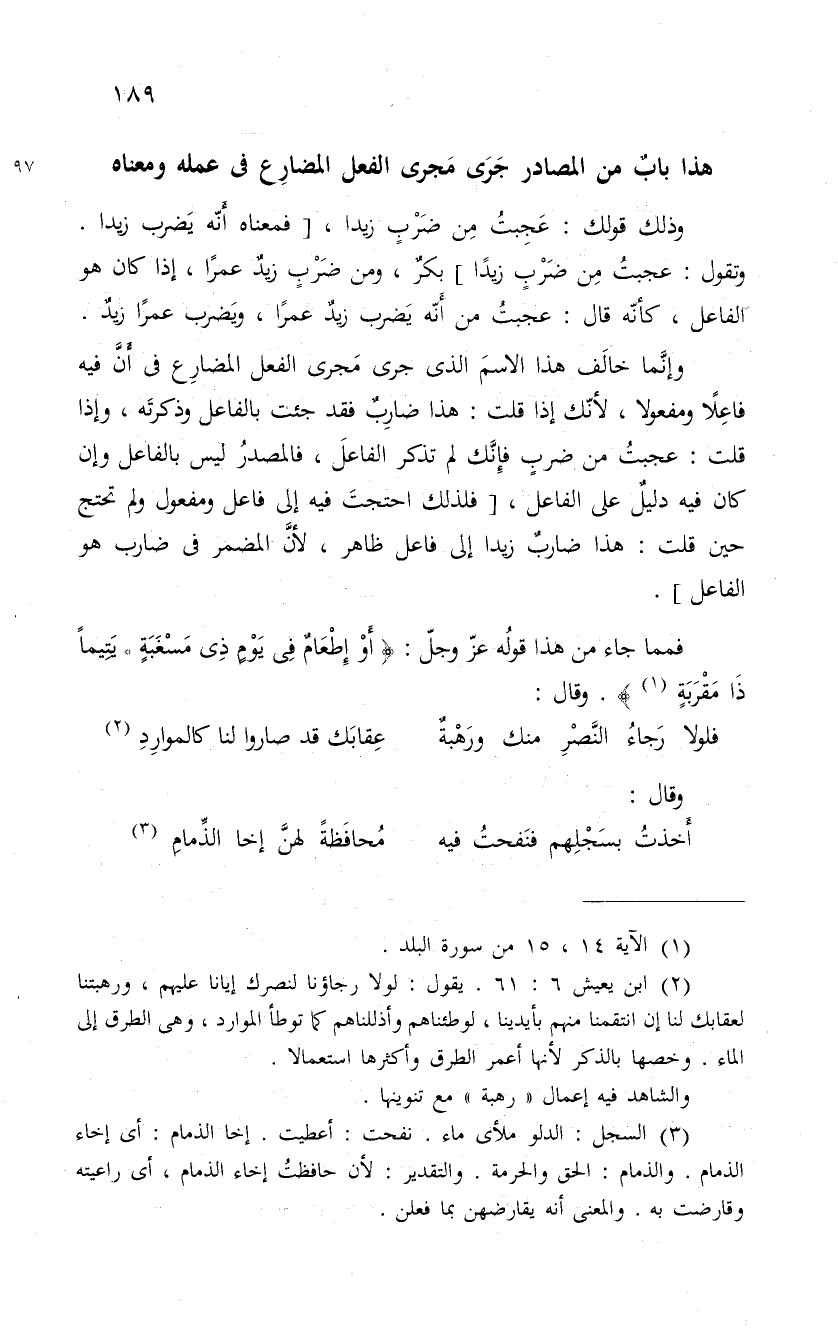 ١٨٩
هذا بابٌ من المصادر جَرَى مَجرى الفعل المضارِع فى عمله ومعناه
٩٧
وذلك قولك : عَجِبتُ مِن ضَرْبٍ زيدا ، [ فمعناه أنّه يَضرب زيدا .
وتقول : عجبتُ مِن ضَرْبٍ زيدًا ] بكرٌ ، ومن ضَرْبٍ زيدٌ عمرًا ، إذا كان هو
الفاعل ، كأنّه قال : عجبتُ من أنّه يَضرب زيدٌ عمرًا ، ويَضرب عمرًا زيدٌ .
وإنَّما خالَف هذا الاسمَ الذى جرى مَجرى الفعل المضارِع فى أنَّ فيه
فاعِلًا ومفعولا ، لأنّك إذا قلت : هذا ضاربٌ فقد جئت بالفاعل وذكرتَه ، وإذا
قلت : عجبتُ من ضربٍ فإِنَّك لم تذكر الفاعلَ ، فالمصدرُ ليس بالفاعل وإن
كان فيه دليلٌ على الفاعل ، [ فلذلك احتجتَ فيه إلى فاعل ومفعول ولم تحتج
حين قلت : هذا ضاربٌ زيدا إلى فاعل ظاهر ، لأنَّ المضمر فى ضارب هو
الفاعل ] .
فمما جاء من هذا قولُه عزّ وجلّ : ﴿ أَوْ إِطْعَامٌ فِى يَوْمٍ ذِى مَسْغَبَةٍ * يَتِيماً
ذَا مَقْرَبَةٍ (١) ﴾ . وقال :
فلولا رَجاءُ النَّصْرِ منك ورَهْبةٌ عِقابَك قد صاروا لنا كالموارِدِ (٢)
وقال :
أخذتُ بسَجْلِهم فنَفحتُ فيه مُحافَظةً لهنَّ إخا الذِّمامِ (٣)
(١) الآية ١٤ ، ١٥ من سورة البلد .
(٢) ابن يعيش ٦ : ٦١ . يقول : لولا رجاؤنا لنصرك إيانا عليهم ، ورهبتنا
لعقابك لنا إن انتقمنا منهم بأيدينا ، لوطئناهم وأذللناهم كما توطأ الموارد ، وهى الطرق إلى
الماء . وخصها بالذكر لأنها أعمر الطرق وأكثرها استعمالا .
والشاهد فيه إعمال « رهبة » مع تنوينها .
(٣) السجل : الدلو ملأى ماء . نفحت : أعطيت . إخا الذمام : أى إخاء
الذمام . والذمام : الحق والحرمة . والتقدير : لأن حافظتُ إخاء الذمام ، أى راعيته
وقارضت به . والمعنى أنه يقارضهن بما فعلن .